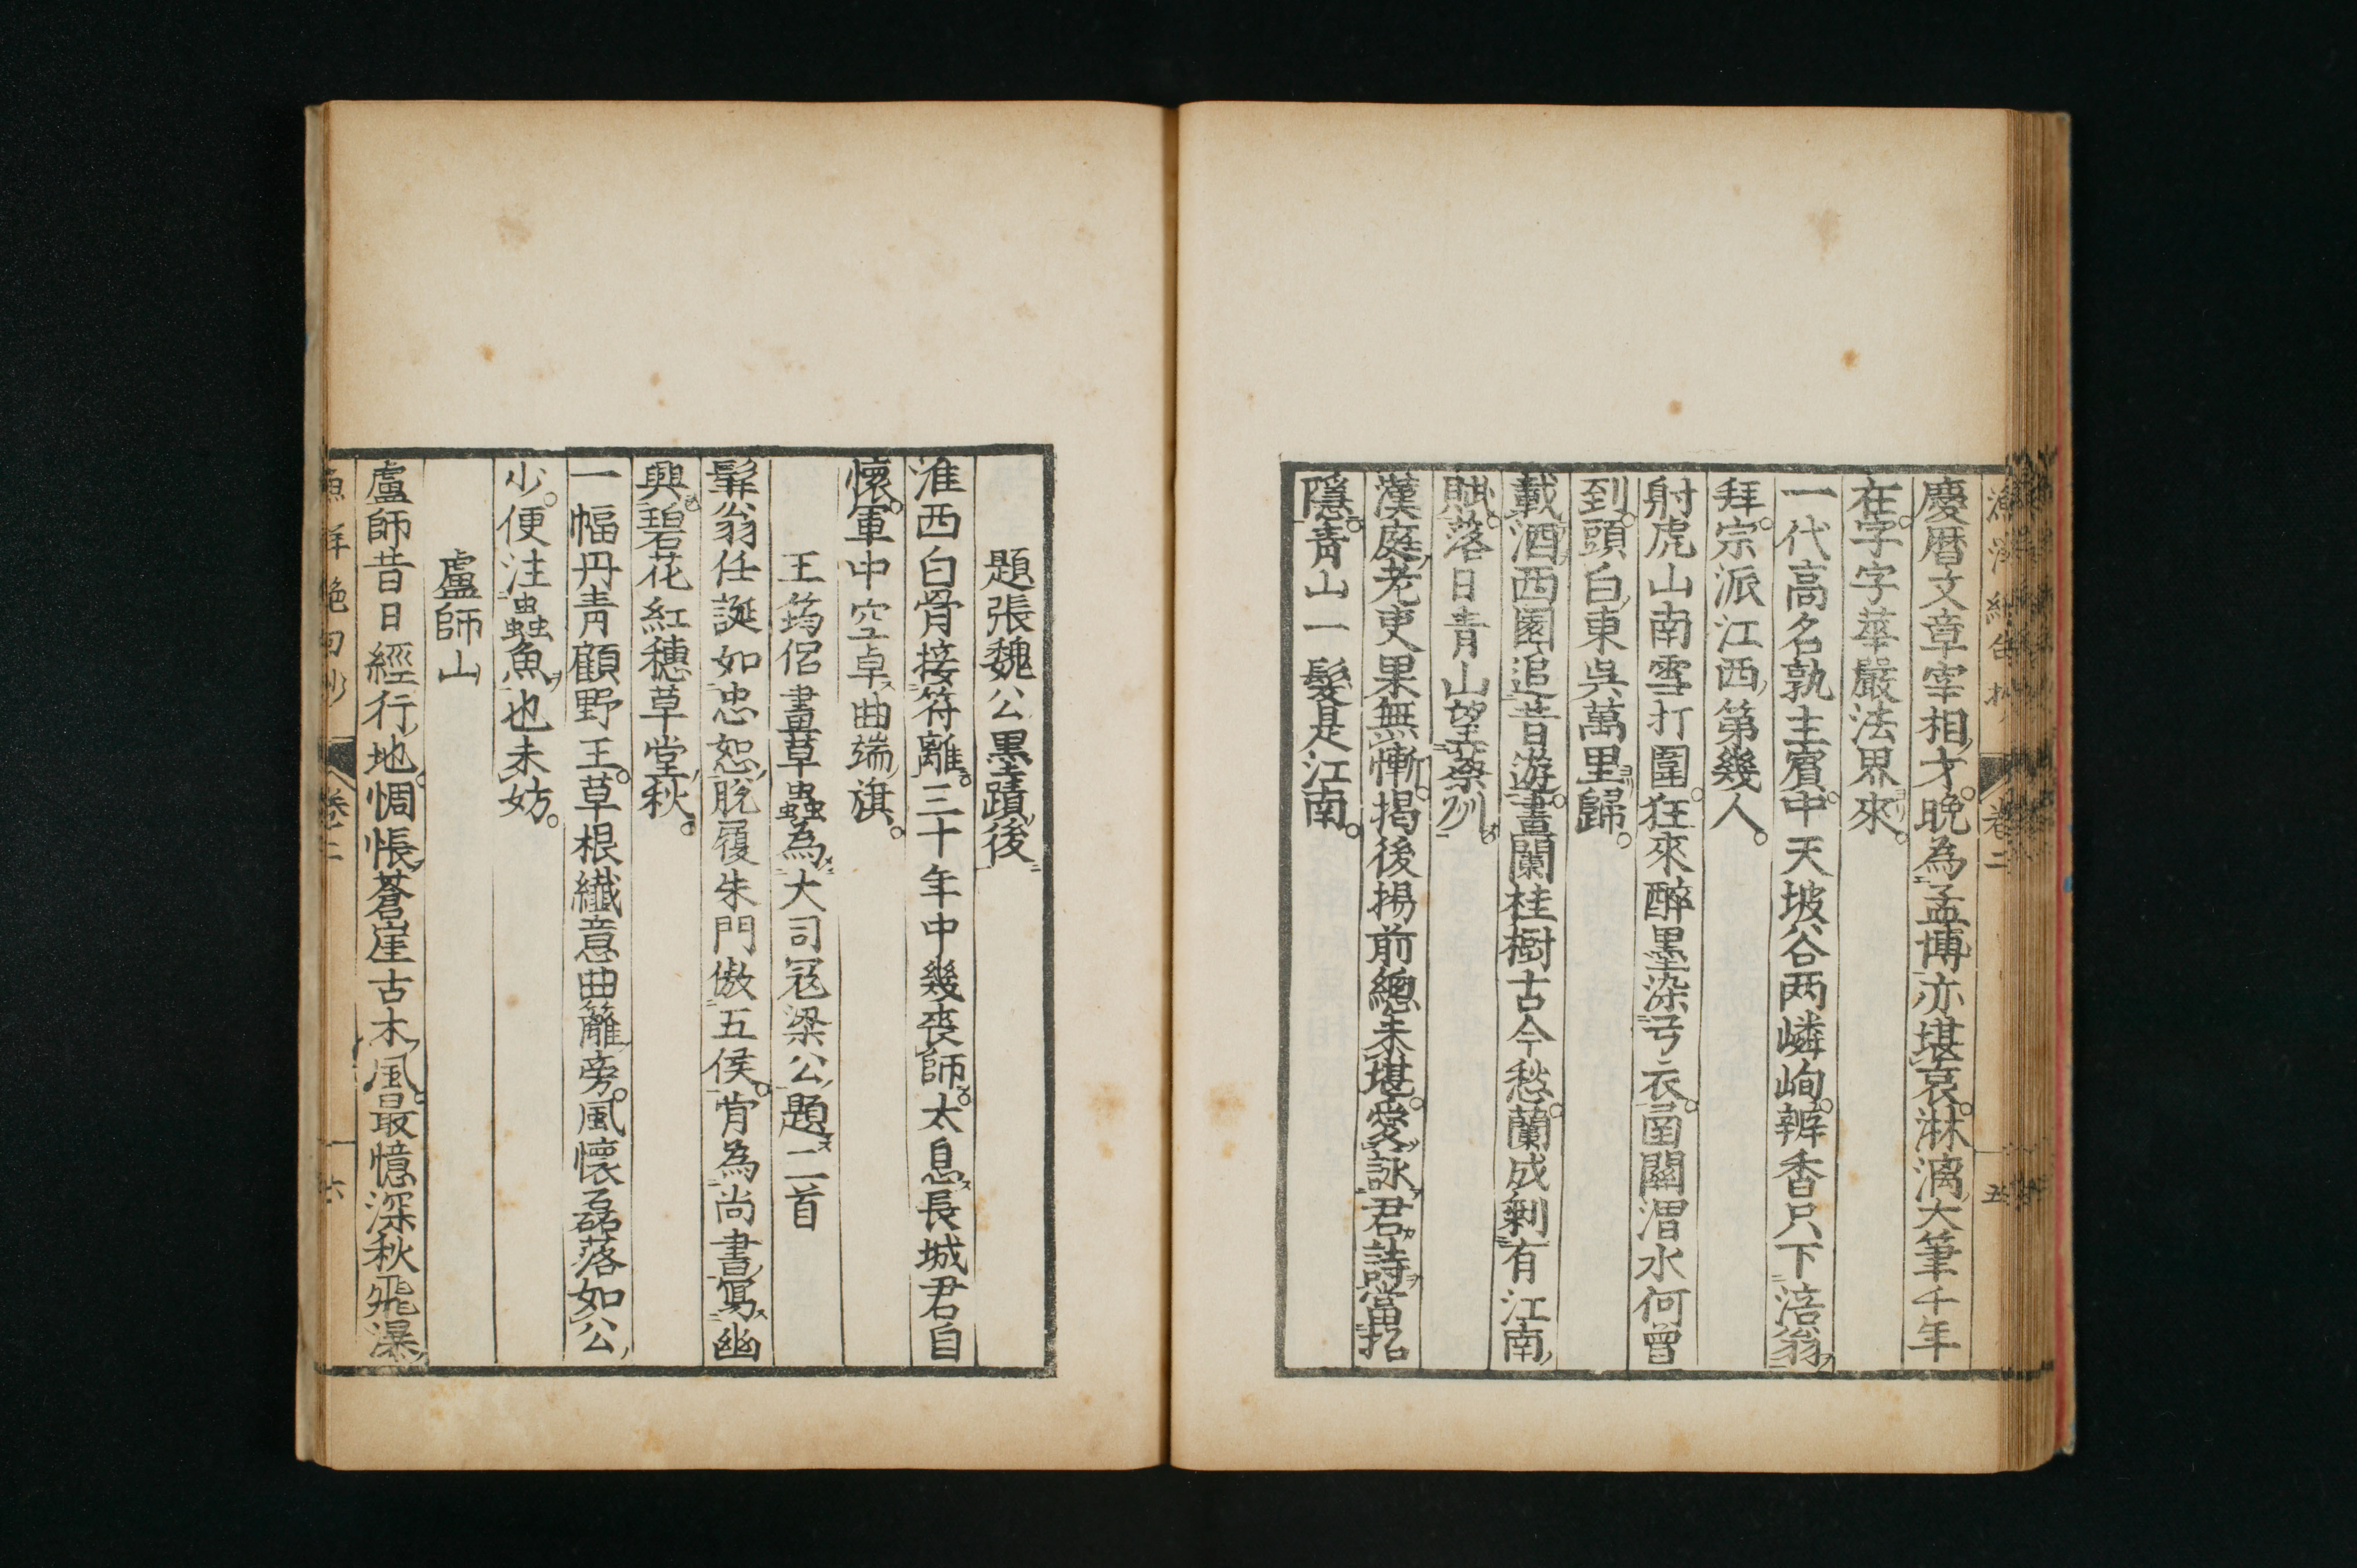 慶暦文章宰相才。晩為孟博亦堪哀。淋漓大筆千年
在。字字華嚴法界來。
一代高名孰主賓。中天坡谷两嶙峋。辦香只下涪翁
拜。宗派江西第幾人。
射虎山南雪打圍。狂來醉墨染弓衣。函關渭水何曾
到。頭白東吳萬里歸。
載酒西園追昔遊。畫闌桂樹古今愁。蘭成剩有江南
賦。落日青山望蔡州。
漢庭老吏果無慚。揭後揚前總未堪。愛詠君詩當招
隱。青山一髮是江南。
卷二
五
題張魏公墨蹟後
淮西白骨接符離。三十年中幾喪師。太息長城君自
懷。軍中空卓曲端旗。
王筠侶畫草蟲為大司冦梁公題二首
髯翁任誕如忠恕。脫履朱門傲五侯。肯為尚書寫幽
興。碧花紅穗草堂秋。
一幅丹青顧野王。草根纖意曲籬旁。風懷磊落如公
少。便注蟲魚也未妨。
盧師山
盧師昔日經行地。惆悵蒼崖古木風。最憶深秋飛瀑
卷二
六